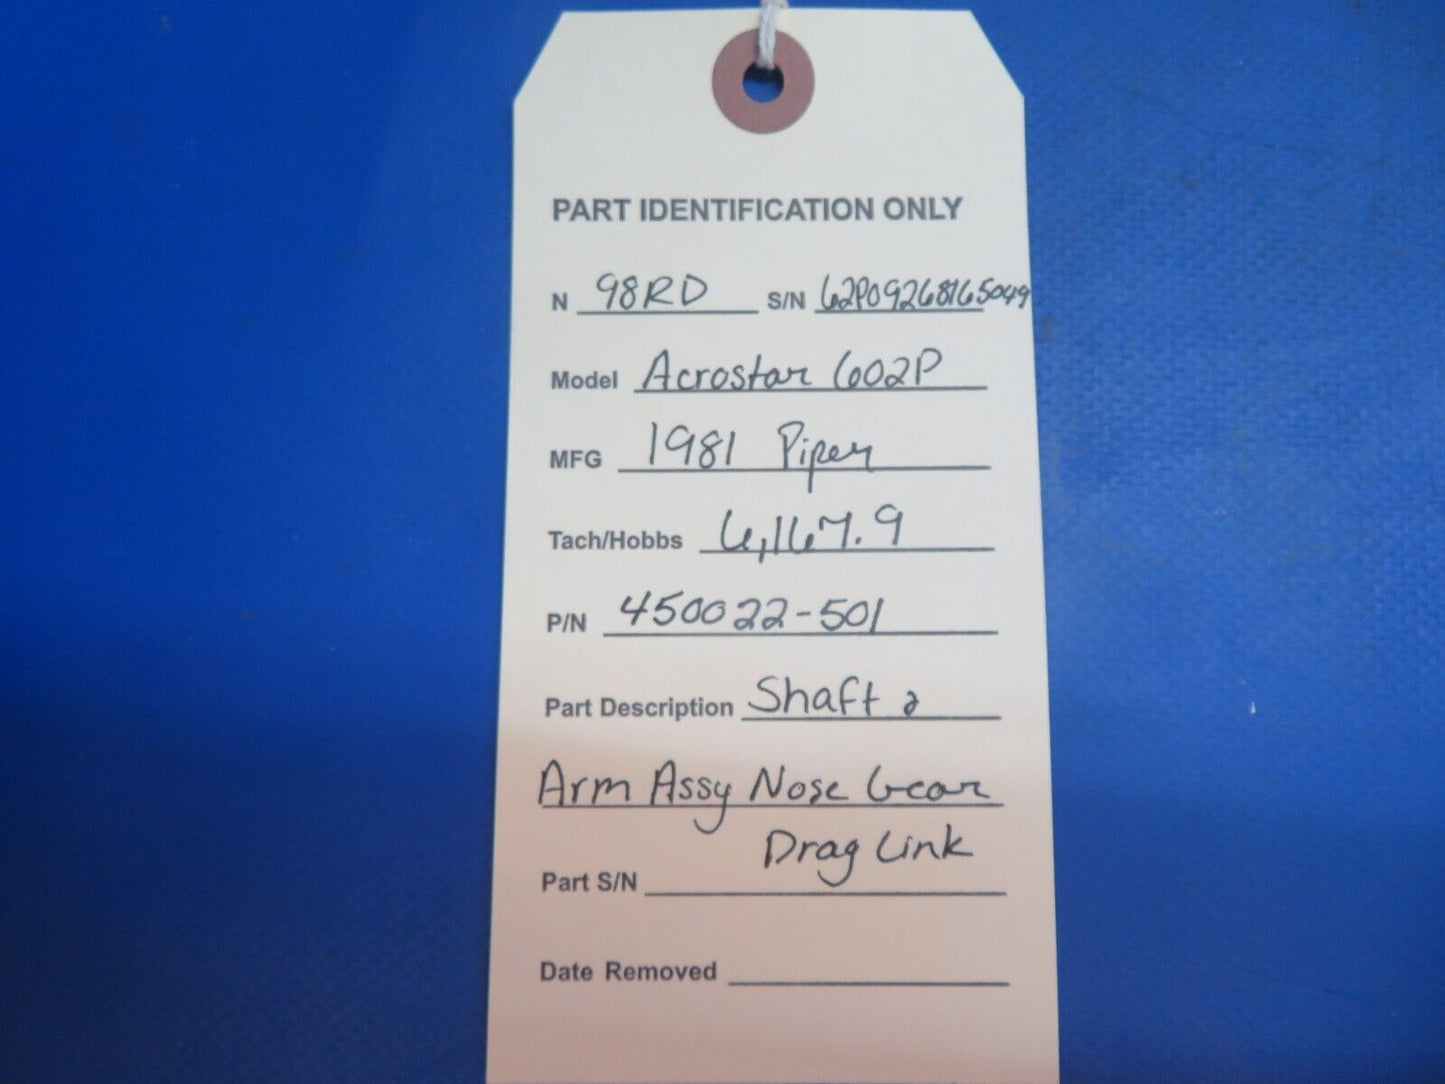 PART IDENTIFICATION ONLY
N 98RD S/N 62P09268165049
Model Acrostar 602P
MFG 1981 Piper
Tach/Hobbs 6,167.9
P/N 450022-501
Part Description Shaft &
Arm Assy Nose Gear
Drag Link
Part S/N
Date Removed